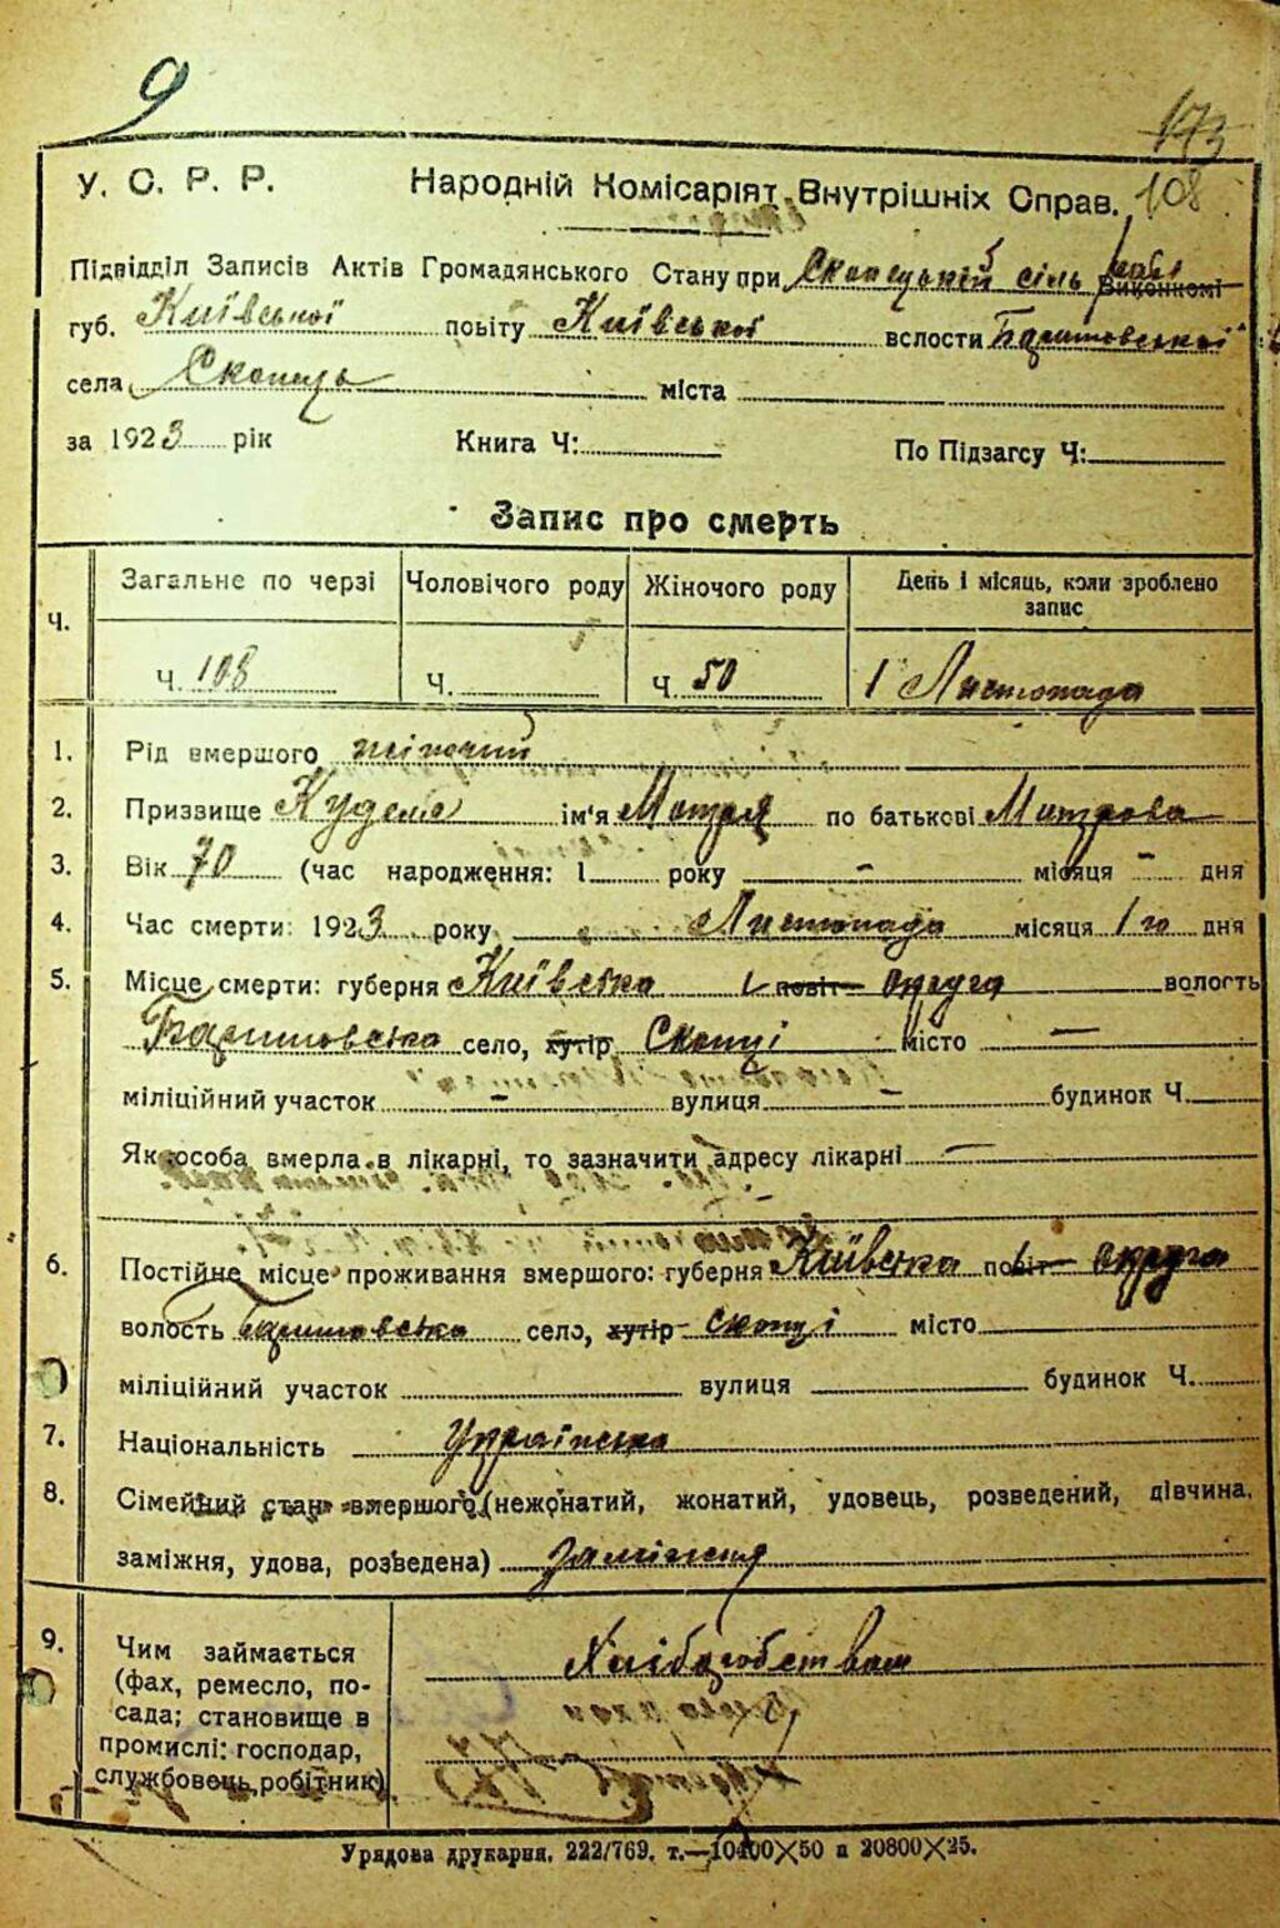 9
173
У. С. Р. Р. Народній Комісаріят Внутрішніх Справ. 108
Підвідділ Записів Актів Громадянського Стану при Скопецькій сіль раді Виконкомі
губ. Київської повіту Київської волости Баришовської
села Скопець міста
за 1923 рік Книга Ч: По Підзагсу Ч:
Запис про смерть
Ч. Загальне по черзі Чоловічого роду Жіночого роду День і місяць, коли зроблено запис
Ч. 108 Ч. Ч. 50 1 Листопада
1. Рід вмершого жіночий
2. Призвище ім'я Мотря по батькові Митрова
3. Вік 70 (час народження: 1 року - місяця - дня
4. Час смерти: 1923 року Листопада місяця 1го дня
5. Місце смерти: губерня Київська повіт округа волость
Баришовська село, хутір Скопці місто —
міліційний участок - вулиця - будинок Ч.
Як особа вмерла в лікарні, то зазначити адресу лікарні —
6. Постійне місце проживання вмершого: губерня Київська повіт округа
волость Баришовська село, хутір Скопці місто
міліційний участок вулиця будинок Ч.
7. Національність Українська
8. Сімейний стан вмершого (нежонатий, жонатий, удовець, розведений, дівчина,
заміжня, удова, розведена) Заміжня
9. Чим займається
(фах, ремесло, по-
сада; становище в
промислі: господар,
службовець, робітник)
Хлібаробством
Урядова друкарня. 222/769. т.—10400×50 п 20800×25.